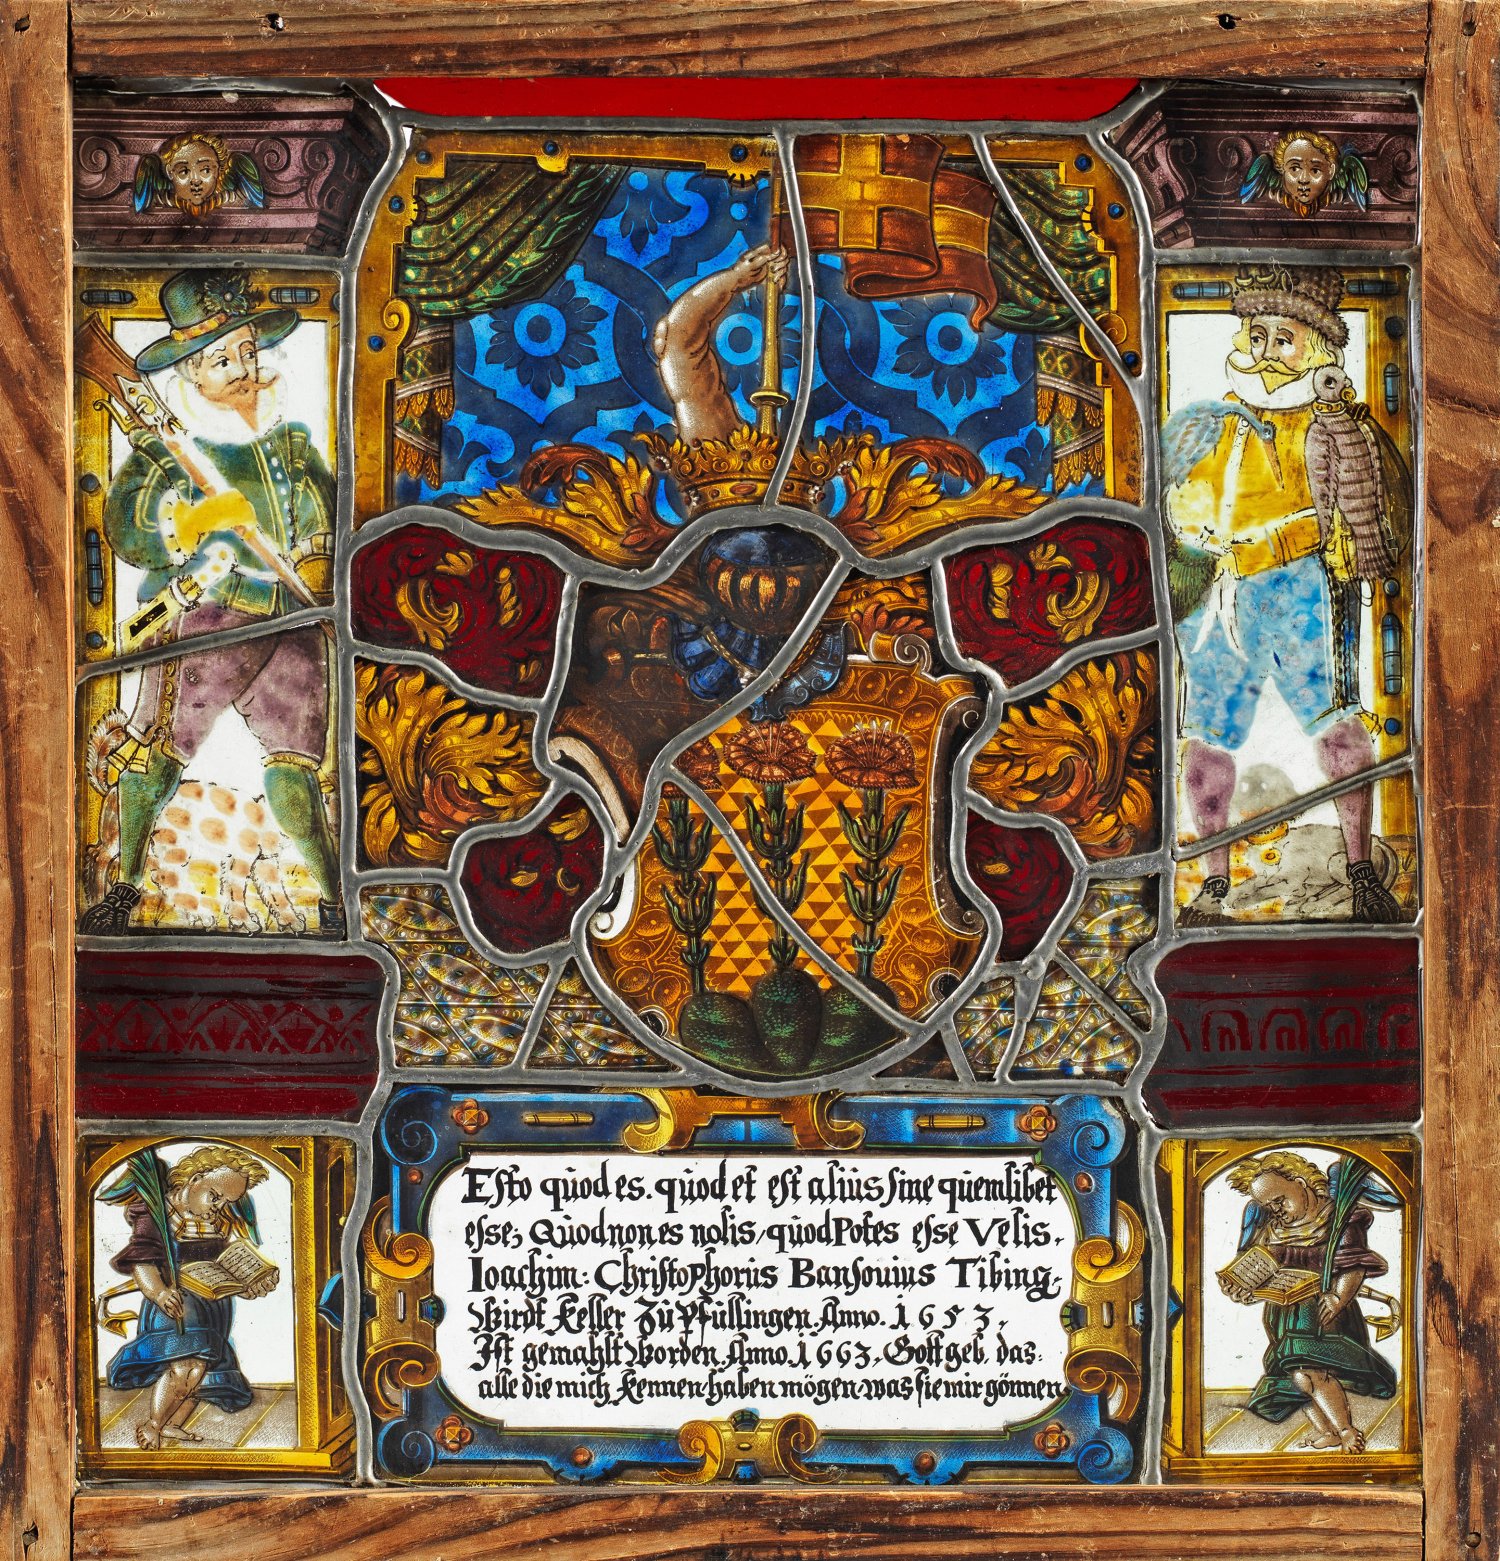 Esto quod es. quod et est alius sine quemlibet
esse; Quod non es nolis, quod Potes esse Velis.
Ioachim: Christophorus Bansouius Tibing.
Wirdt Keller Zu Pfullingen Anno. 1653,
Ist gemahlt worden. Anno. 1663. Gott geb. das:
alle die mich Kennen haben mögen was sie mir gönnen